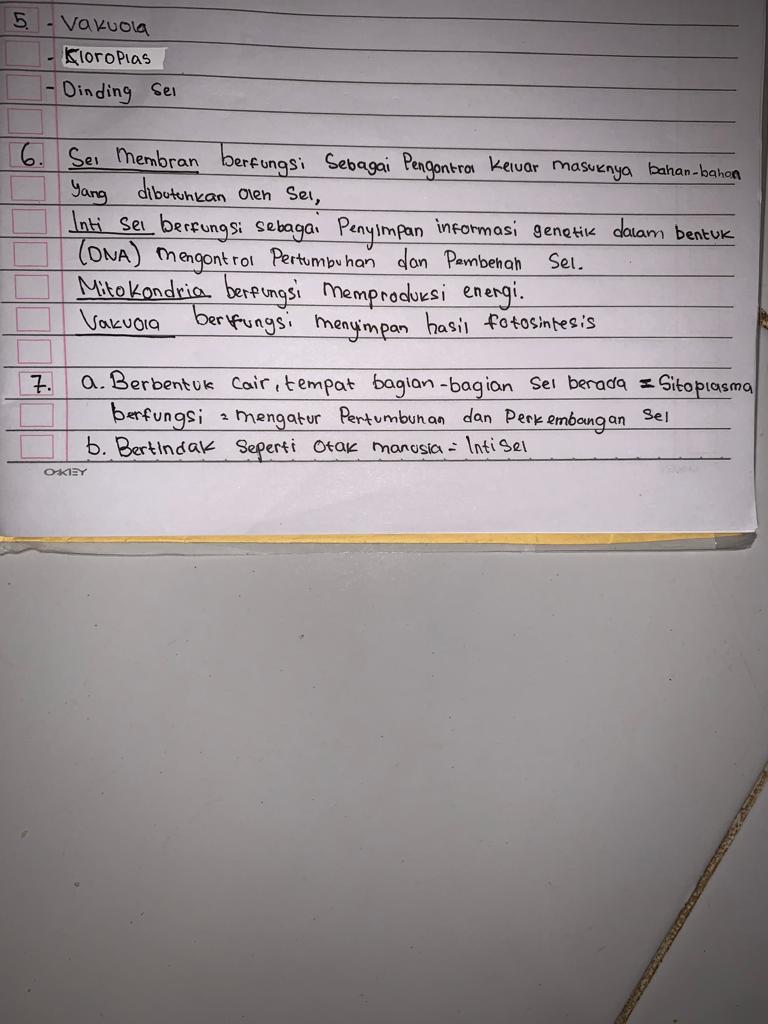 5. - Vakuola
- Kloroplas
- Dinding Sel
6. Sel Membran berfungsi Sebagai Pengontrol Keluar masuknya bahan-bahan
Yang dibutuhkan oleh Sel,
Inti Sel berfungsi sebagai Penyimpan informasi genetik dalam bentuk
(DNA) mengontrol Pertumbuhan dan Pembenah Sel.
Mitokondria berfungsi memproduksi energi.
Vakuola berfungsi menyimpan hasil fotosintesis
7. a. Berbentuk Cair, tempat bagian-bagian Sel berada = Sitoplasma
berfungsi = mengatur Pertumbuhan dan Perkembangan Sel
b. Bertindak Seperti Otak manusia = Inti Sel
OKEY